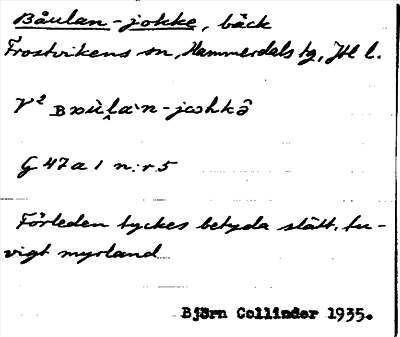 Båulan-jokke, bäck
Frostvikens sn, Hammerdals tg, Jtl l.
G 47 a 1 n:r 5
Förleden tyckes betyda slätt, tu-
vigt myrland
Björn Collinder 1935.